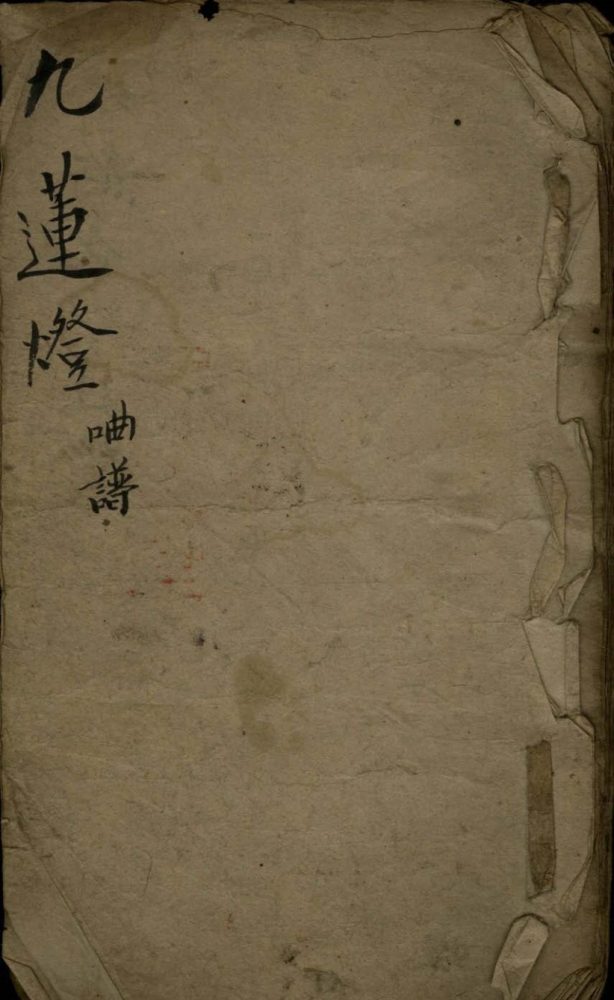 九蓮燈
㖆譜